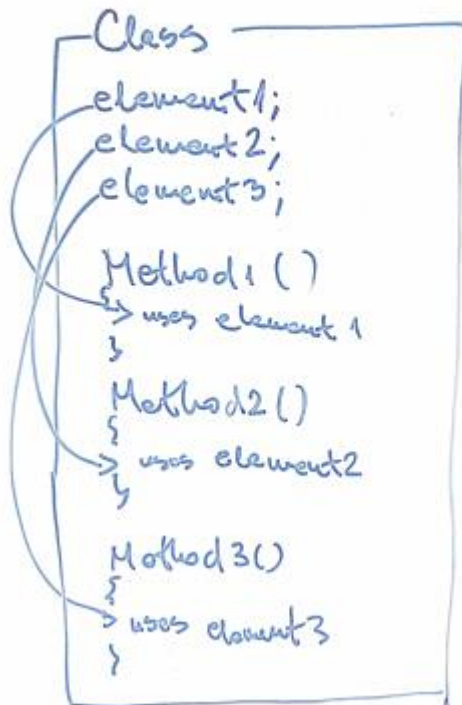 Class
element1;
element2;
element3;
Method1 ()
{
uses element 1
}
Method2 ()
{
uses element2
}
Method3()
{
uses element3
}